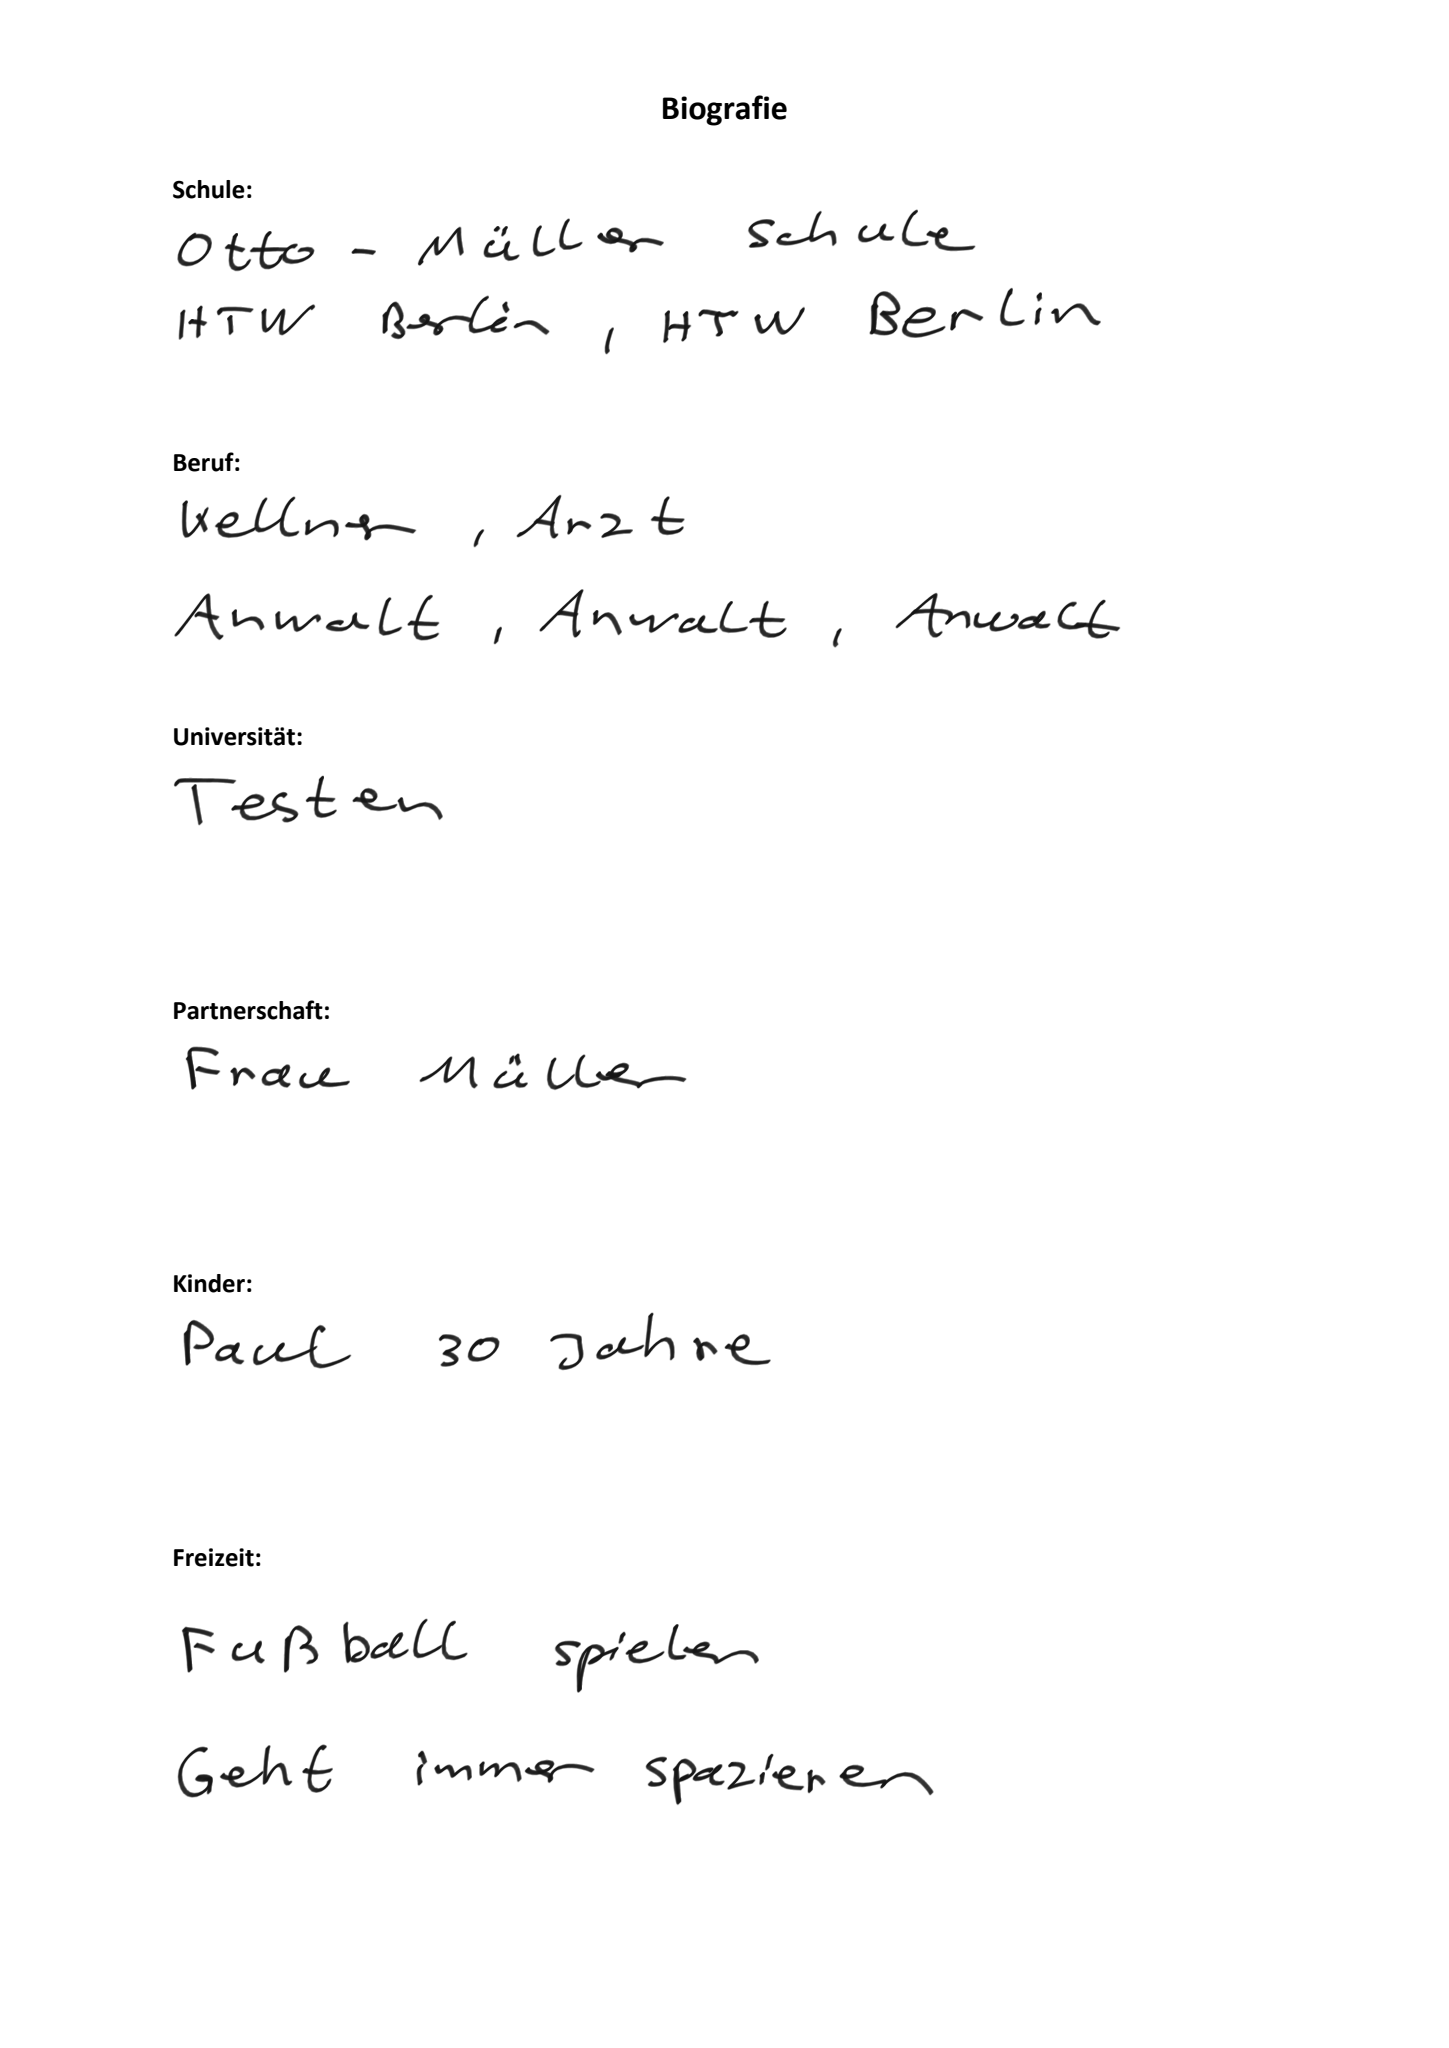 Biografie
Schule:
Otto - Müller Schule
HTW Berlin, HTW Berlin
Beruf:
Kellner, Arzt
Anwalt, Anwalt, Anwalt
Universität:
Testen
Partnerschaft:
Frau Müller
Kinder:
Paul 30 Jahre
Freizeit:
Fußball spielen
Geht immer spazieren